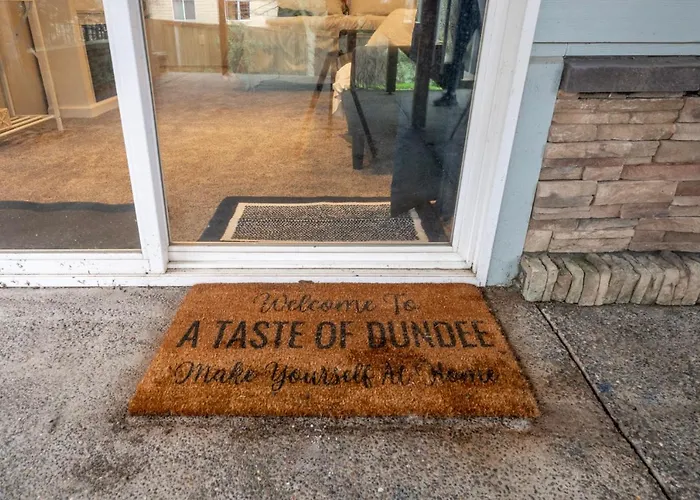 Welcome To
A TASTE OF DUNDEE
Make Yourself At Home